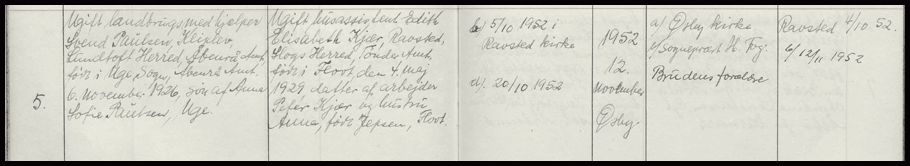 5.
Ugift landbrugsmedhjælper
Svend Paulsen, Kliplev,
Lundtoft Herred, Åbenrå Amt.
født i Uge Sogn, Åbenrå Amt.
6. November 1926, søn af Anna
Sofie Paulsen, Uge.
Ugift husassistent Edith
Elisabeth Kjær, Ravsted,
Slogs Herred, Tønder Amt,
født i Hovt, den 4. maj
1929 datter af arbejder
Peter Kjær og hustru
Anna, født Jepsen, Hovt.
b) 5/10 1952 i
Ravsted kirke
d). 20/10 1952
1952
12.
November
Øsby.
a) Øsby kirke
Sognepræst H. Fog.
Brudens forældre
Ravsted 4/10 52.
12/11 1952